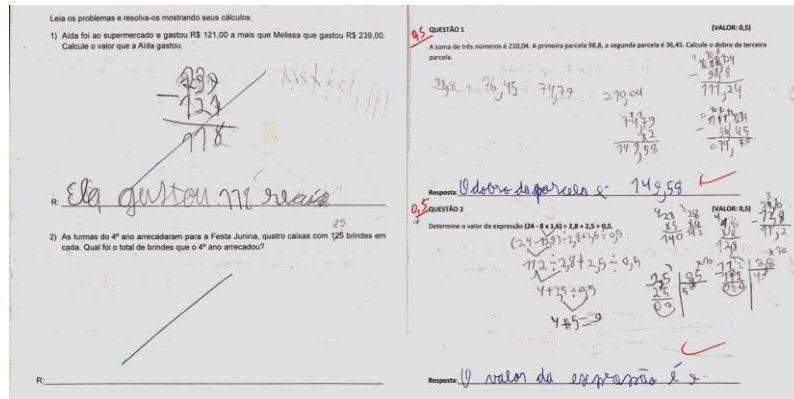 Leia os problemas e resolva-os mostrando seus cálculos:
1) Aida foi ao supermercado e gastou R$ 121,00 a mais que Melissa que gastou R$ 239,00.
Calcule o valor que a Aida gastou.
239
- 121
118
R: Ela gastou 118 reais
2) As turmas do 4º ano arrecadaram para a Festa Junina, quatro caixas com 125 brindes em
25
cada. Qual foi o total de brindes que o 4º ano arrecadou?
R:
0,5
QUESTÃO 1 (VALOR: 0,5)
A soma de três números é 210,04. A primeira parcela 98,8, a segunda parcela é 36,45. Calcule o dobro da terceira
parcela.
98,8 + 36,45 + 74,79 = 210,04
- 98,8
111,24
- 36,45
074,79
74,79
x2
149,58
Resposta: O dobro da parcela é 149,58
0,5
QUESTÃO 2 (VALOR: 0,5)
Determine o valor da expressão (24 - 8 x 1,6) ÷ 2,8 + 2,5 ÷ 0,5.
(24-12,8)÷2,8+2,5÷0,5
11,2÷2,8+2,5÷0,5
4+2,5÷0,5
4+5=9
28
x5
140
28
x4
112
1,6
x8
12,8
- 12,8
11,2
Resposta: O valor da expressão é 9.